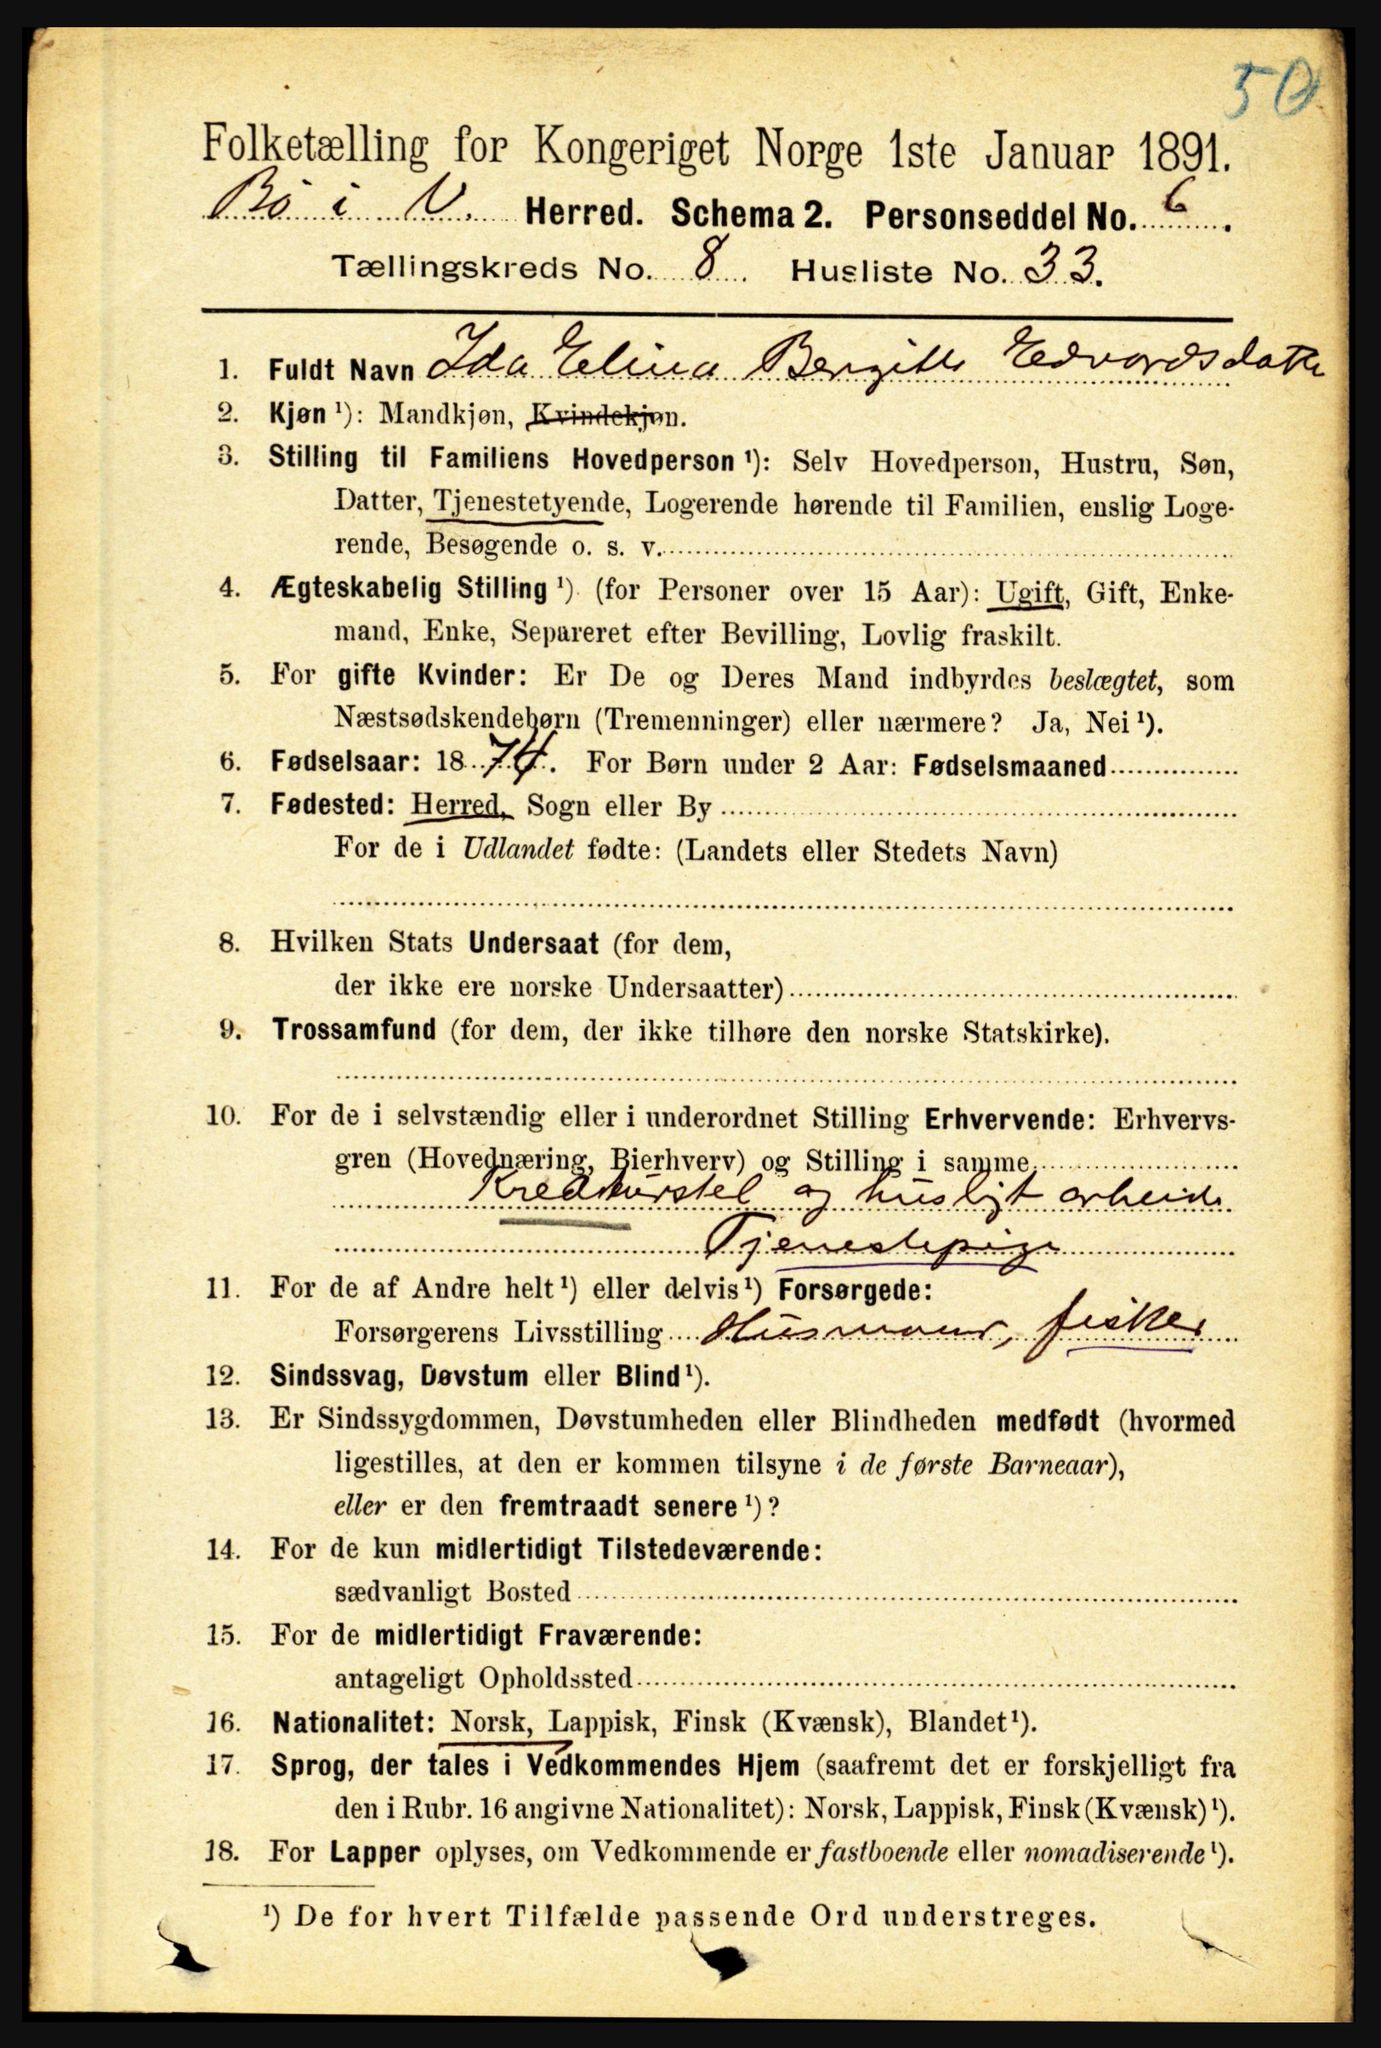 50
Folketælling for Kongeriget Norge 1ste Januar 1891.
Bö i V. Herred. Schema 2. Personseddel No. 6.
Tællingskreds No. 8. Husliste No. 33.
1. Fuldt Navn Ida Elina Bergitte Edvardsdatter
2. Kjøn ¹): Mandkjøn, Kvindekjøn.
3. Stilling til Familiens Hovedperson ¹): Selv Hovedperson, Hustru, Søn,
Datter, Tjenestetyende, Logerende hørende til Familien, enslig Loge-
rende, Besøgende o. s. v.
4. Ægteskabelig Stilling ¹) (for Personer over 15 Aar): Ugift, Gift, Enke-
mand, Enke, Separeret efter Bevilling, Lovlig fraskilt.
5. For gifte Kvinder: Er De og Deres Mand indbyrdes beslægtet, som
Næstsødskendebørn (Tremenninger) eller nærmere? Ja, Nei ¹).
6. Fødselsaar: 1874. For Børn under 2 Aar: Fødselsmaaned
7. Fødested: Herred, Sogn eller By
For de i Udlandet fødte: (Landets eller Stedets Navn)
8. Hvilken Stats Undersaat (for dem,
der ikke ere norske Undersaatter)
9. Trossamfund (for dem, der ikke tilhøre den norske Statskirke).
10. For de i selvstændig eller i underordnet Stilling Erhvervende: Erhvervs-
gren (Hovednæring, Bierhverv) og Stilling i samme
Kreaturstel og husligt arbeide
Tjenestepige
11. For de af Andre helt ¹) eller delvis ¹) Forsørgede:
Forsørgerens Livsstilling Husmand, fisker
12. Sindssvag, Døvstum eller Blind ¹).
13. Er Sindssygdommen, Døvstumheden eller Blindheden medfødt (hvormed
ligestilles, at den er kommen tilsyne i de første Barneaar),
eller er den fremtraadt senere ¹)?
14. For de kun midlertidigt Tilstedeværende:
sædvanligt Bosted
15. For de midlertidigt Fraværende:
antageligt Opholdssted
16. Nationalitet: Norsk, Lappisk, Finsk (Kvænsk), Blandet ¹).
17. Sprog, der tales i Vedkommendes Hjem (saafremt det er forskjelligt fra
den i Rubr. 16 angivne Nationalitet): Norsk, Lappisk, Finsk (Kvænsk) ¹).
18. For Lapper oplyses, om Vedkommende er fastboende eller nomadiserende ¹).
¹) De for hvert Tilfælde passende Ord understreges.